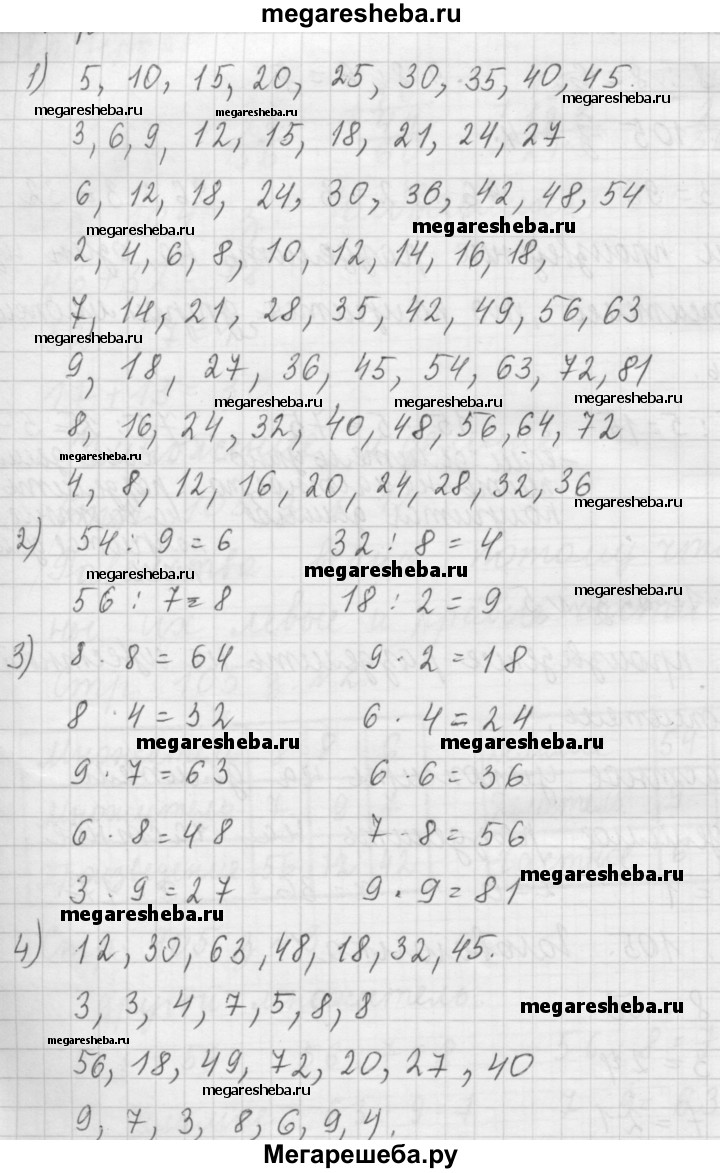 megaresheba.ru
1) 5, 10, 15, 20, 25, 30, 35, 40, 45.
megaresheba.ru megaresheba.ru megaresheba.ru
3, 6, 9, 12, 15, 18, 21, 24, 27
6, 12, 18, 24, 30, 36, 42, 48, 54
megaresheba.ru megaresheba.ru
2, 4, 6, 8, 10, 12, 14, 16, 18,
7, 14, 21, 28, 35, 42, 49, 56, 63
megaresheba.ru
9, 18, 27, 36, 45, 54, 63, 72, 81
megaresheba.ru megaresheba.ru megaresheba.ru
8, 16, 24, 32, 40, 48, 56, 64, 72
megaresheba.ru
4, 8, 12, 16, 20, 24, 28, 32, 36
megaresheba.ru
2) 54 : 9 = 6 32 : 8 = 4
megaresheba.ru megaresheba.ru megaresheba.ru
56 : 7 = 8 18 : 2 = 9
3) 8 · 8 = 64 9 · 2 = 18
8 · 4 = 32 6 · 4 = 24
megaresheba.ru megaresheba.ru
9 · 7 = 63 6 · 6 = 36
6 · 8 = 48 7 · 8 = 56
megaresheba.ru
3 · 9 = 27 9 · 9 = 81
megaresheba.ru
4) 12, 30, 63, 48, 18, 32, 45.
3, 3, 4, 7, 5, 8, 8
megaresheba.ru
megaresheba.ru
56, 18, 49, 72, 20, 27, 40
megaresheba.ru
9, 7, 3, 8, 6, 9, 4.
Мегарешеба.ру